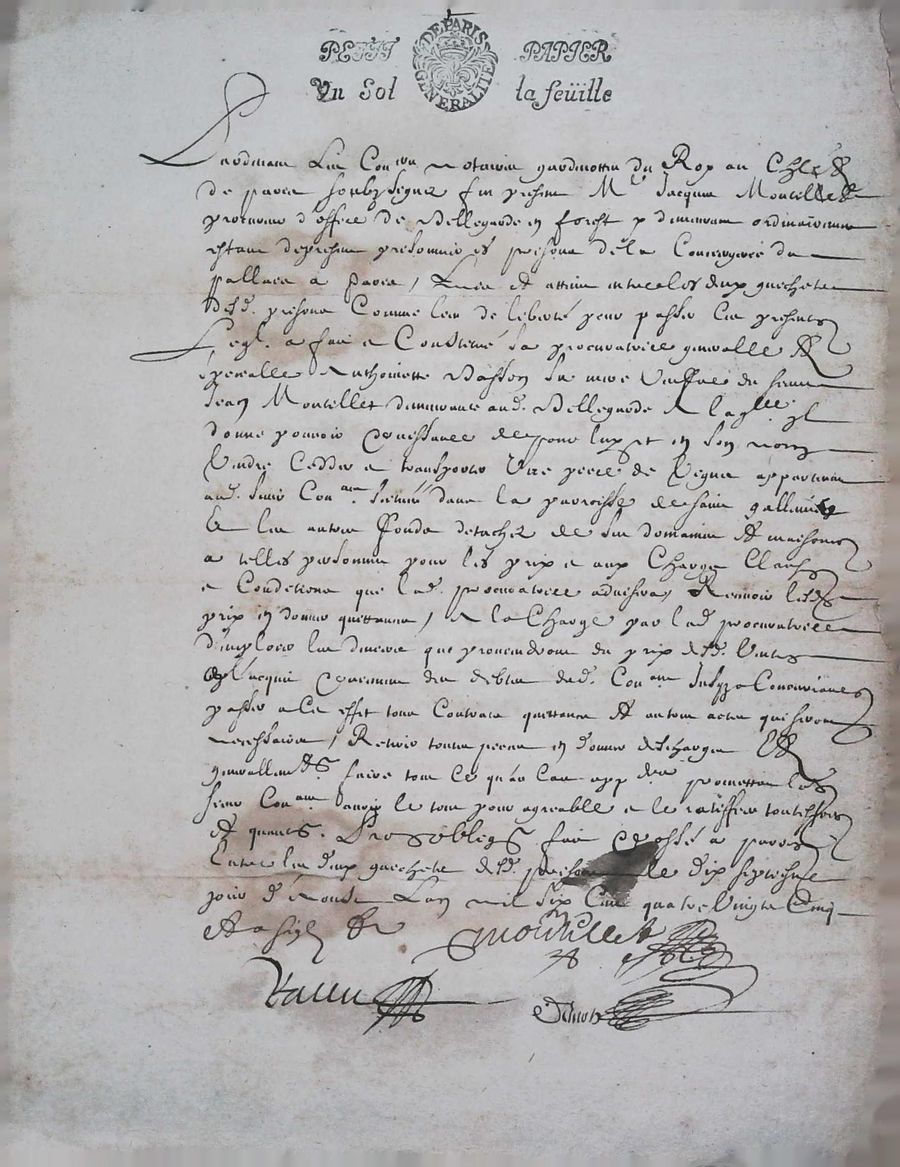 PETIT DE PARIS PAPIER
Vn Sol GENERALITE la feüille
Pardevant Les Con.ers notaires gardenottes du Roy au Ch.let
de paris soubzsignez fut present M.e Jacques Montellet
procureur d'office de Bellegarde en forest y demeurant ordinairement
estant de present prisonnier es prisons de la Conciergerie du
pallais a Paris, Luy attire entre les deux guichets
desd. prisons Comme lieu de liberté pour passer les presentes
Leql. a fait et Constitué sa procuratrice generalle Et
specialle Anthoinette Basson sa mere Veufve de feu
Jean Montellet demeurante aud. Bellegarde A laqlle. il
donne pouvoir et puissance de pour luy et en son nom
Vendre Ceder et transporter Une piece de Vigne appartenant
aud. sieur Con.ant scituée dans la parroisse de saint gallmier
& les autres fonds detachez de ses domaines Et maisons
a telles personnes pour les prix et aux Charges Clauses
et Conditions que lad. procuratrice advisera, Recevoir lesd.
prix en donner quittances, A la Charge par lad. procuratrice
d'employer les deniers que proviendront du prix desd. Ventes
a l'acquit des debtes dud. Con.ant
passer a Cet effet tous Contracts quittances Et autres actes que seront
necessaires, Retirer toutes pieces en donner descharges Et
generallem.t faire tout Ce qu'au Cas app.dra promettant led.
sieur Con.ant avoir le tout pour agreable et le ratiffier touteffois
Et quantes. Promt obligt fait et passé a paris
Entre les deux guichets desd. prisons le dix septiesme
jour d' Aoust L'an mil six Cens quatre Vingts Cinq
Et a signé
Montellet